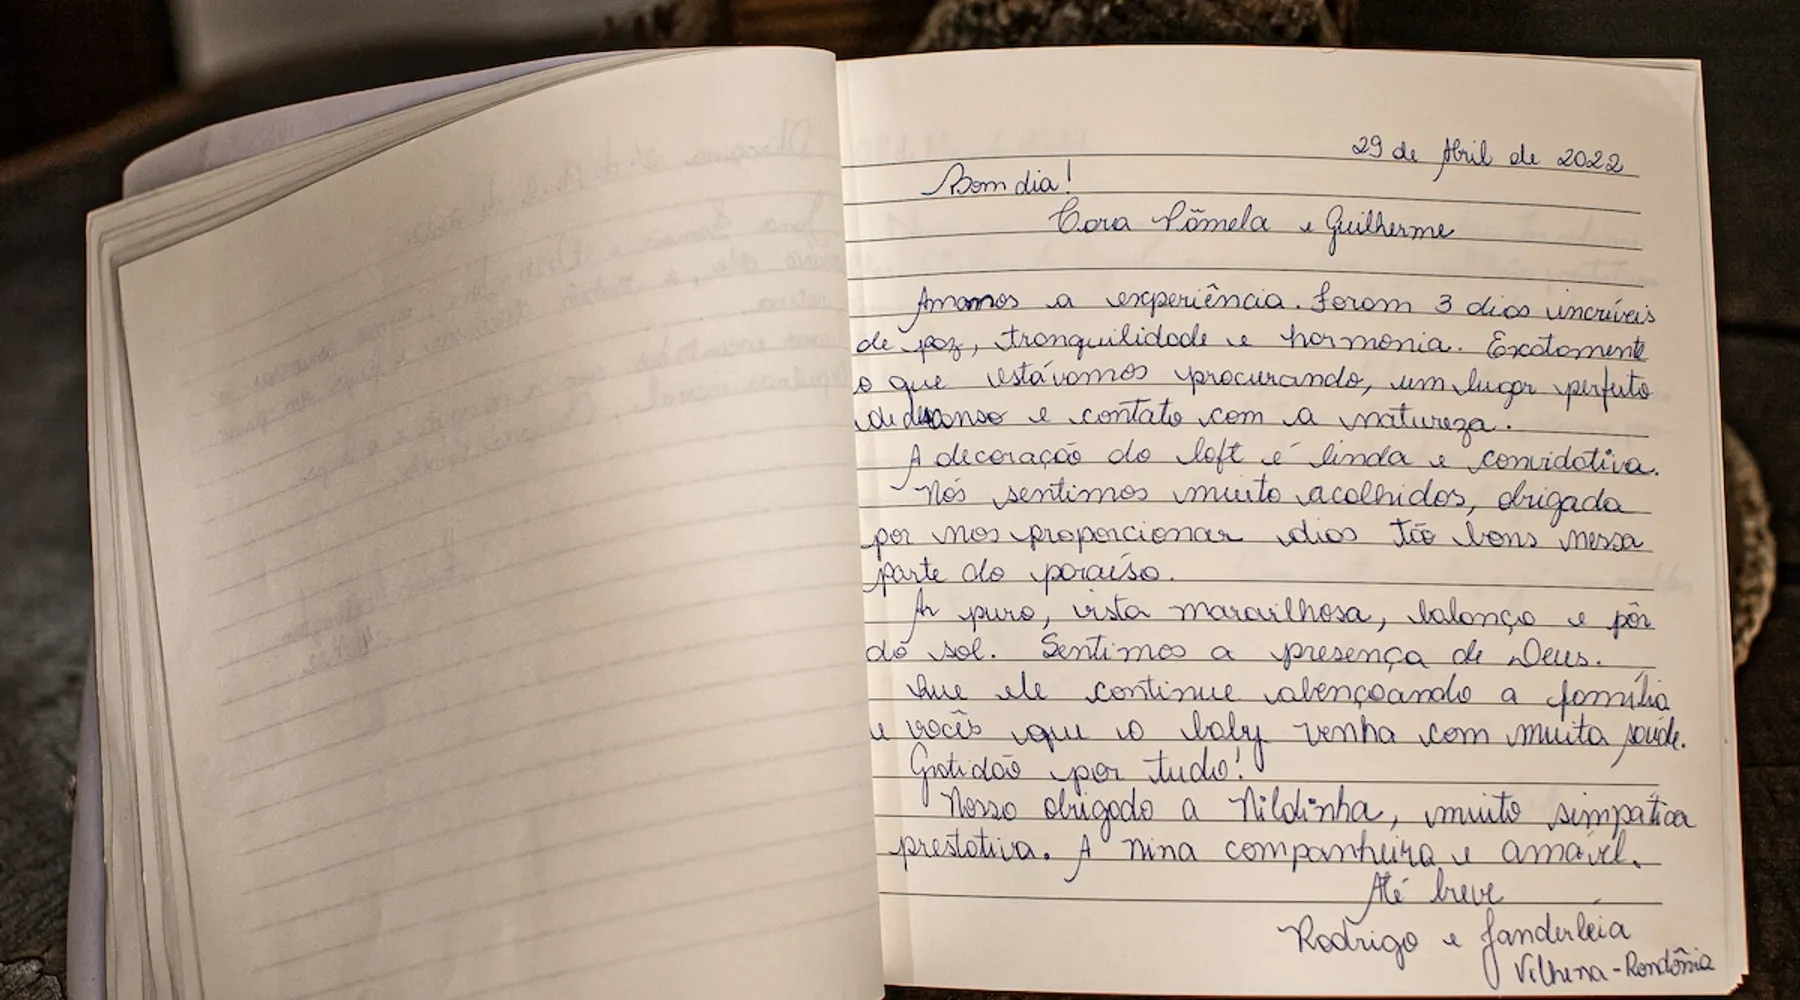 29 de Abril de 2022
Bom dia!
Cara Pâmela e Guilherme
Amamos a experiência. Foram 3 dias incríveis
de paz, tranquilidade e harmonia. Exatamente
o que estávamos procurando, um lugar perfeito
de descanso e contato com a natureza.
A decoração do loft é linda e convidativa.
Nós sentimos muito acolhidos, obrigada
por nos proporcionar dias tão bons nessa
parte do paraíso.
Ar puro, vista maravilhosa, balanço e pôr
do sol. Sentimos a presença de Deus.
Que ele continue abençoando a família
e vocês que o baby venha com muita saúde.
Gratidão por tudo!
Nosso obrigado a Nildinha, muito simpática
prestativa. A Nina companheira e amável.
Até breve
Rodrigo e Janderleia
Vilhena-Rondônia